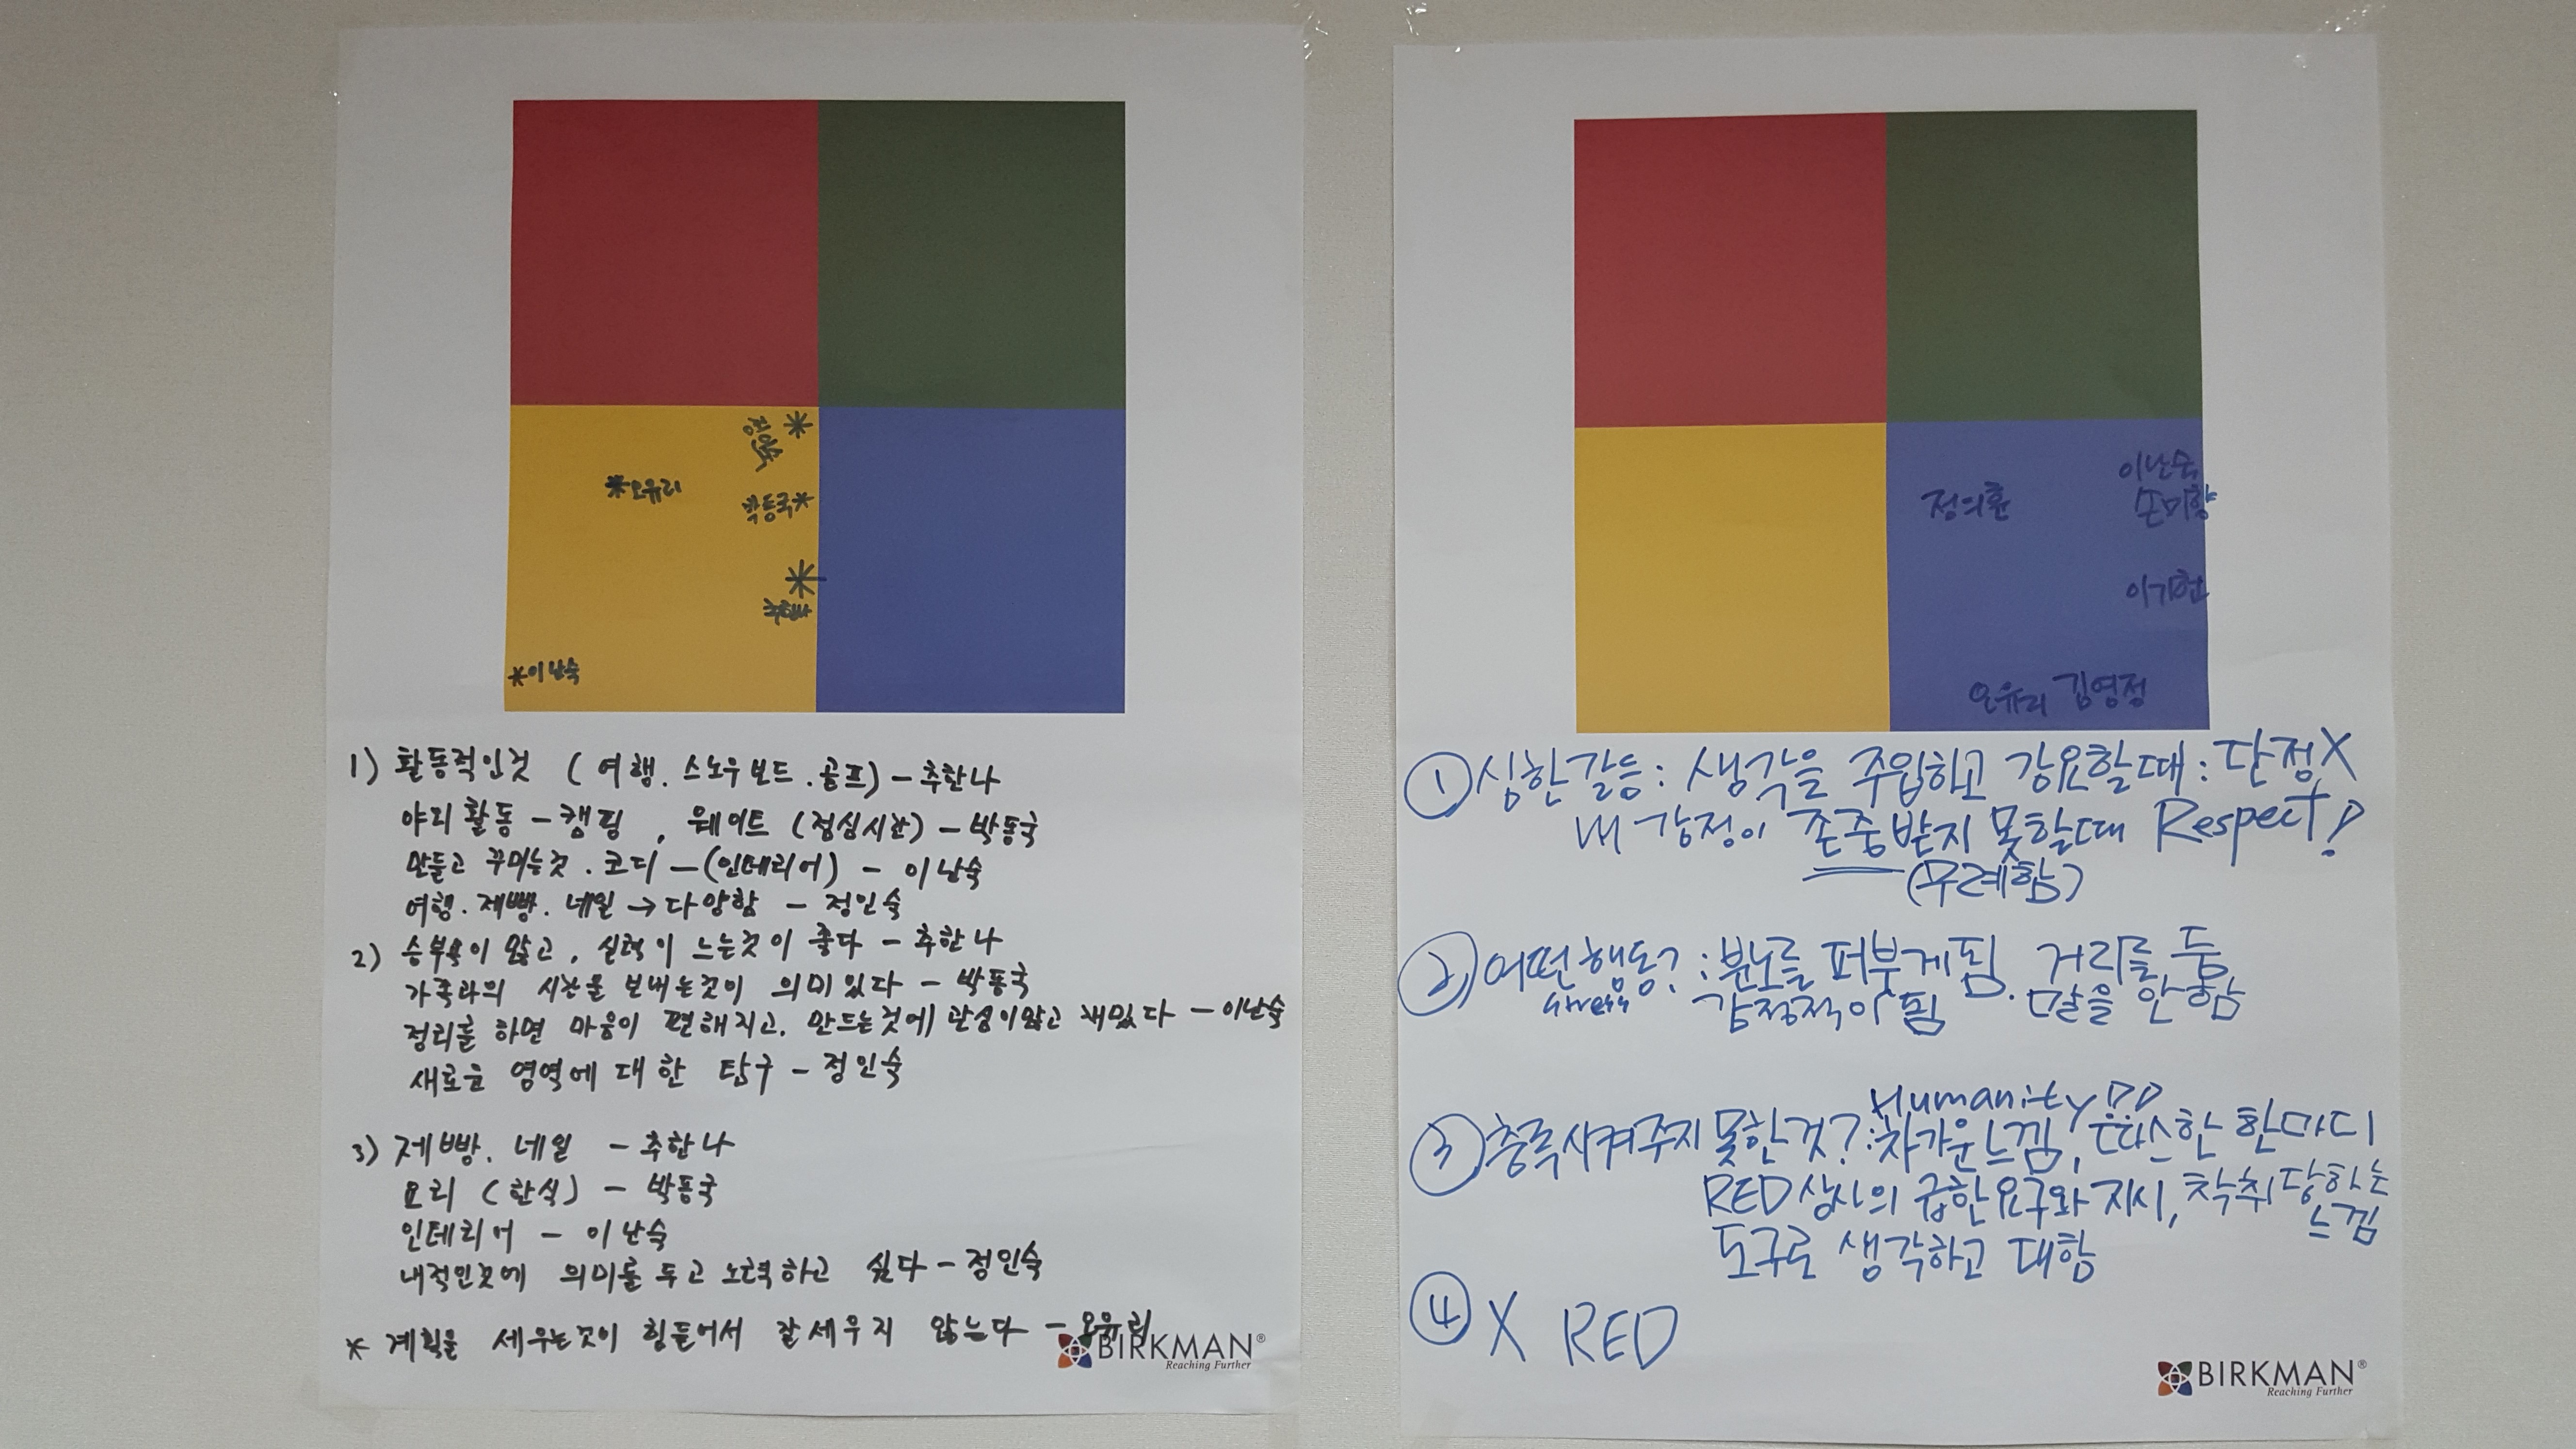 정인숙
*오유리
박동국*
추한나
*이난숙
1) 활동적인것 (여행. 스노우보드. 골프) - 추한나
야외 활동 - 캠핑, 웨이트 (점심시간) - 박동국
만들고 꾸미는것. 코디 - (인테리어) - 이난숙
여행. 제빵. 네일 → 다양함 - 정인숙
2) 승부욕이 많고, 실력이 느는것이 좋다 - 추한나
가족과의 시간을 보내는것이 의미있다 - 박동국
정리를 하면 마음이 편해지고. 만드는것에 관심이많고 재밌다 - 이난숙
새로운 영역에 대한 탐구 - 정인숙
3) 제빵. 네일 - 추한나
요리 (한식) - 박동국
인테리어 - 이난숙
내적인것에 의미를 두고 노력하고 싶다 - 정인숙
* 계획을 세우는것이 힘들어서 잘세우지 않는다 - 오유리
BIRKMAN®
Reaching Further
이난숙
정의훈 손미향
이기현
오유리 김영정
① 심한갈등: 생각을 주입하고 강요할때: 단정X
내 감정이 존중받지 못할때 Respect!
(무례함)
② 어떤행동?: 분노를 퍼붓게됨. 거리를 둠
stress 감정적이 됨. 말을 안함
Humanity
③ 충족시켜주지 못한것?: 차가운느낌, 따뜻한 한마디
RED상사의 급한요구와 지시, 착취당하는
느낌
도구로 생각하고 대함
④ X RED
BIRKMAN®
Reaching Further